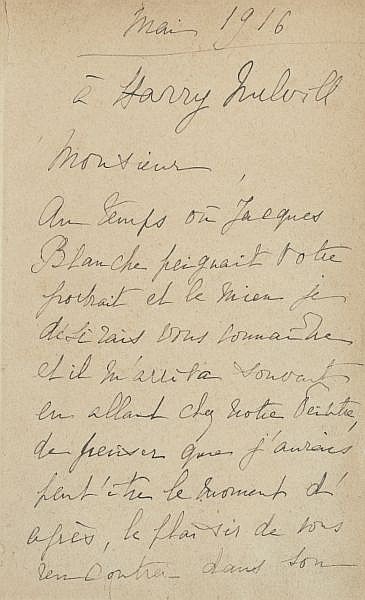 Mai 1916
à Harry Melvill
Monsieur,
Au temps où Jacques
Blanche peignait votre
portrait et le mien je
désirais vous connaître
et il m'arriva souvent
en allant chez notre Peintre,
de penser que j'aurais
peut'être le moment d'
après, le plaisir de vous
rencontrer dans son